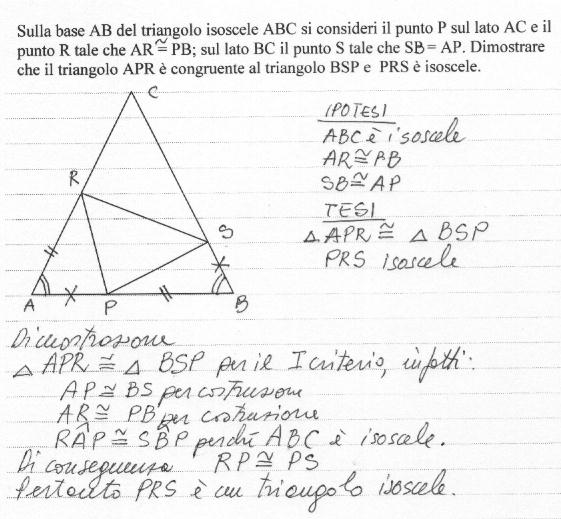 Sulla base AB del triangolo isoscele ABC si consideri il punto P sul lato AC e il
punto R tale che AR ≅ PB; sul lato BC il punto S tale che SB = AP. Dimostrare
che il triangolo APR è congruente al triangolo BSP e PRS è isoscele.
C
IPOTESI
ABC è isoscele
AR ≅ PB
SB ≅ AP
R
TESI
S
△ APR ≅ △ BSP
PRS isoscele
A P B
Dimostrazione
△ APR ≅ △ BSP per il I criterio, infatti:
AP ≅ BS per costruzione
AR ≅ PB per costruzione
RÂP ≅ SB̂P perché ABC è isoscele.
Di conseguenza RP ≅ PS
Pertanto PRS è un triangolo isoscele.